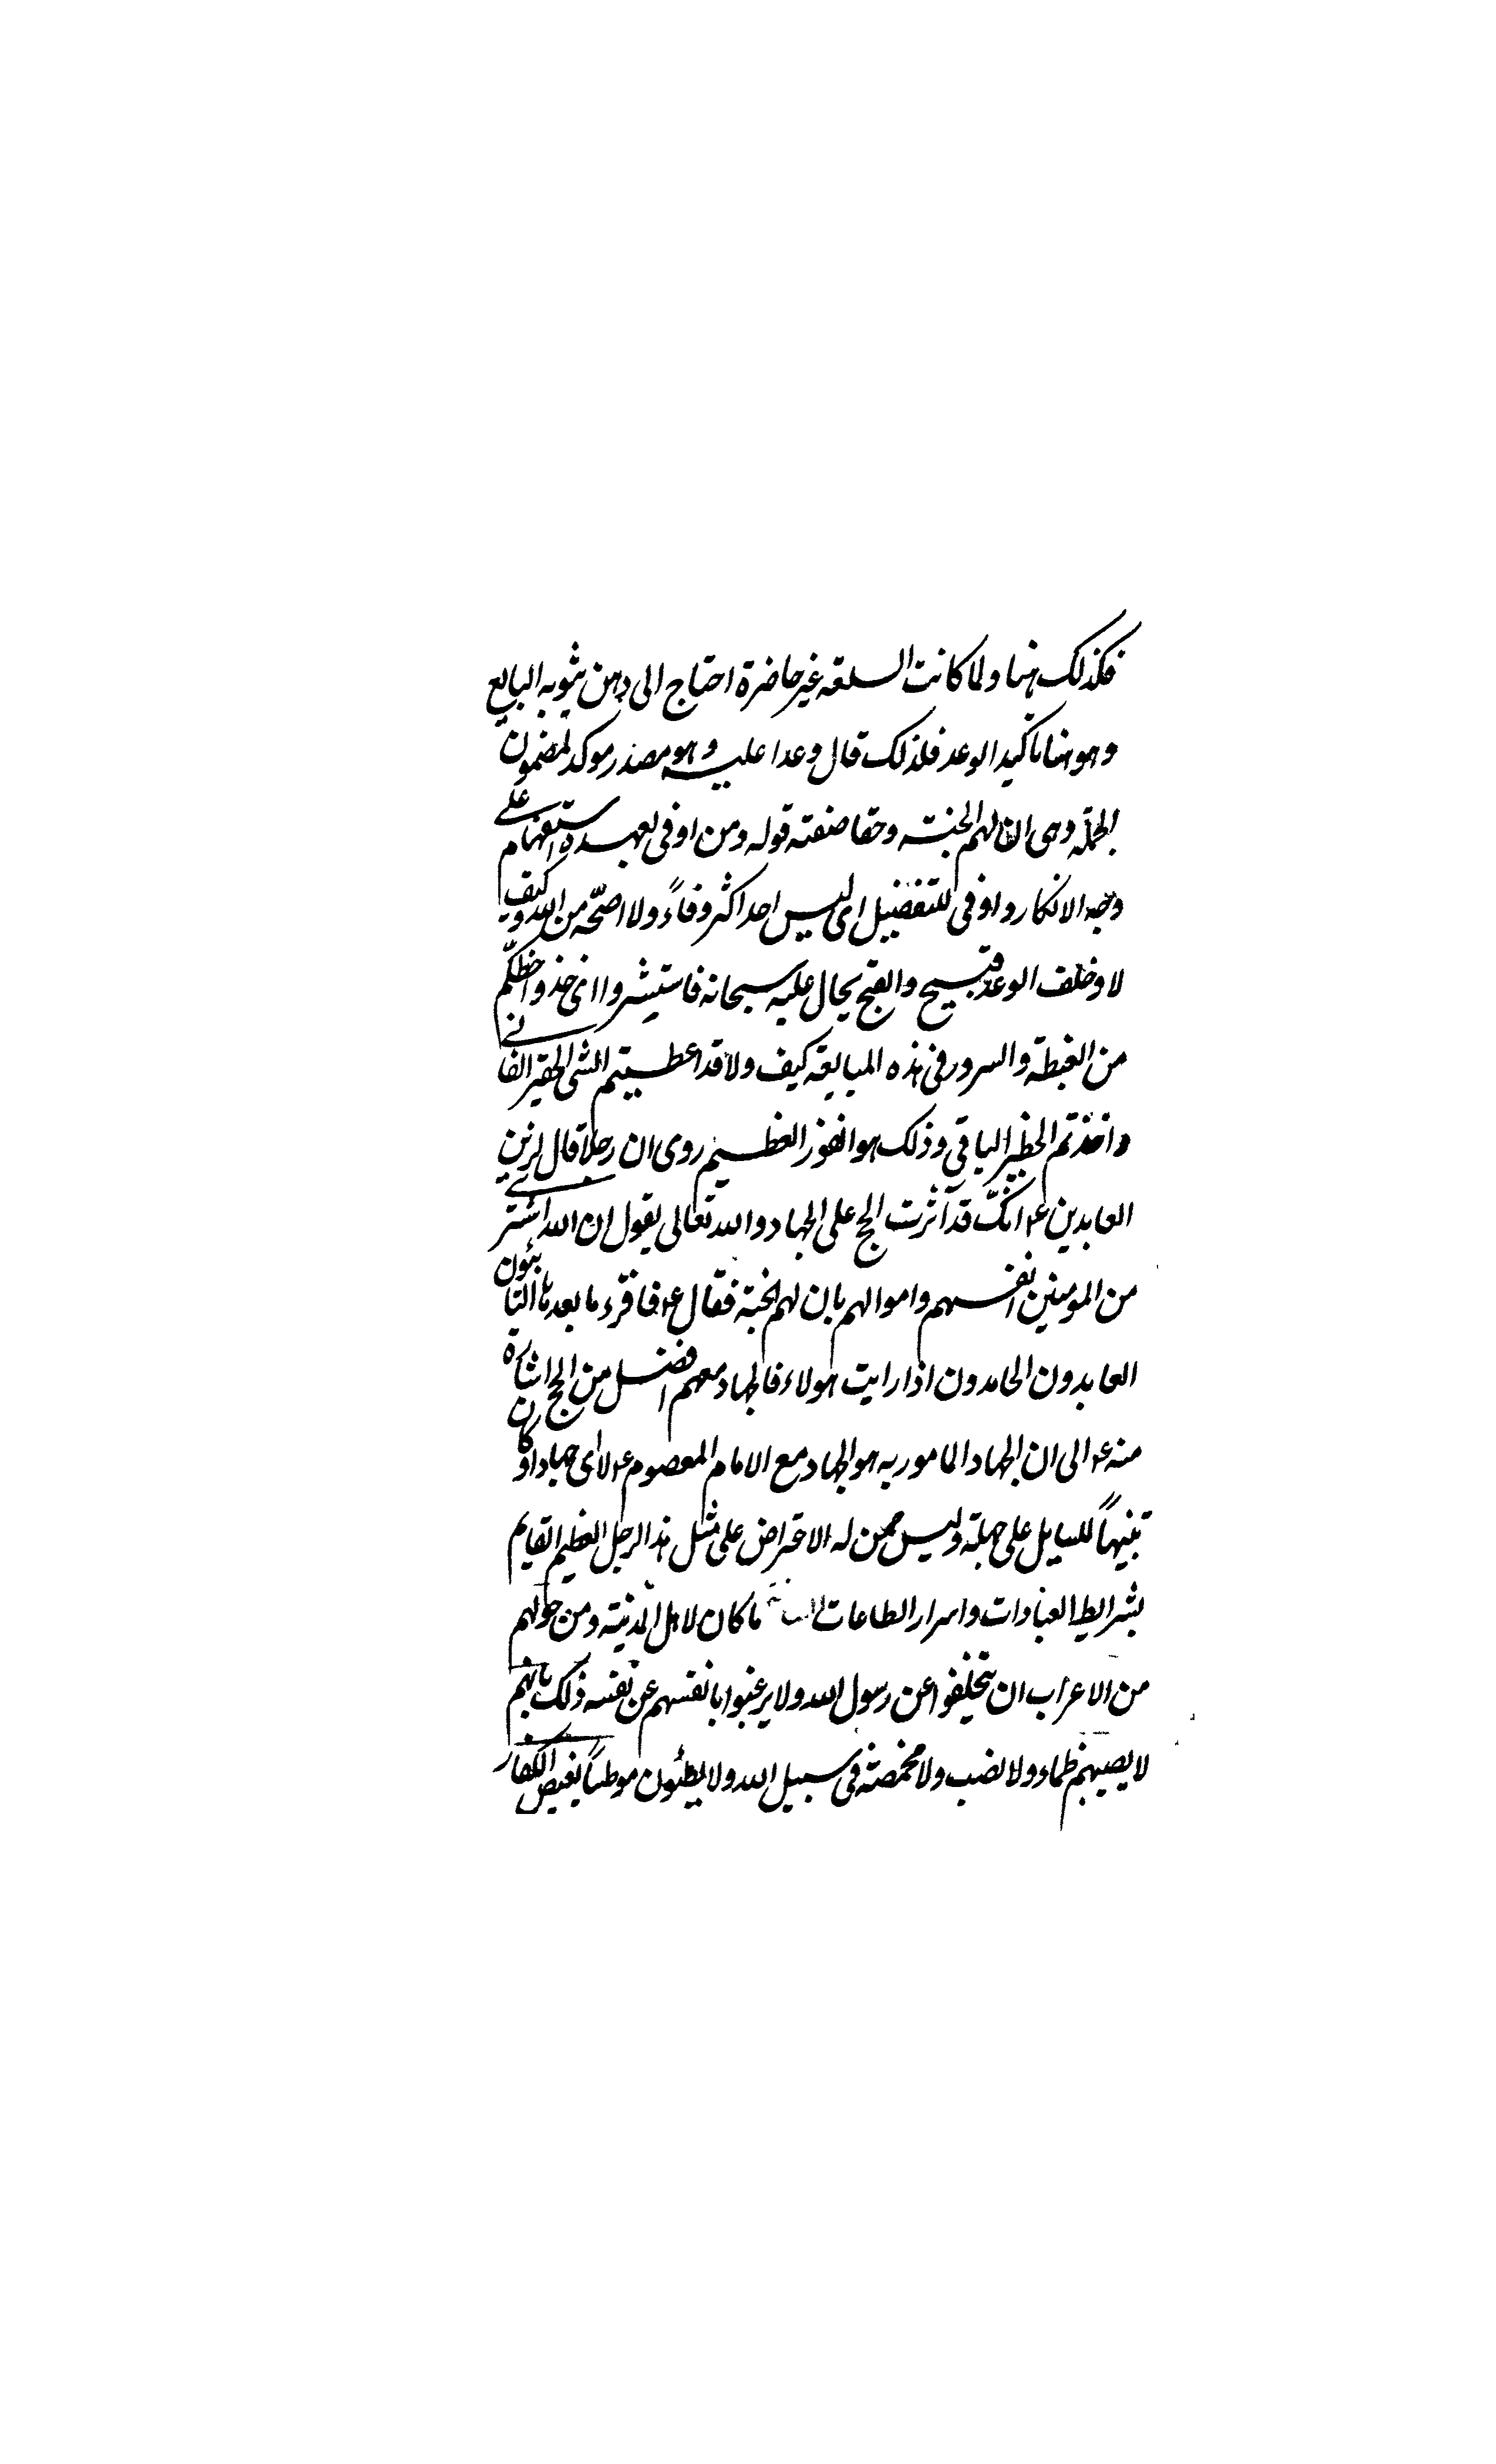 فكذلك هنا ولما كانت السلعه غير حاضرة احتاج الى رهن يثوبه البايع
وهو هنا تاكيد الوعد فلذلك قال وعدا عليه وهو مصدر موكد لمضمون
الجملة وهى ان لهم الجنته وحقا صفته قوله ومن اوفى بعهده استفهام على
وجه الانكار واوفى للتفضيل اى ليس احد اكثر وفاءً ولا اصحّه من الله وكيف
لا وخلف الوعد قبيح والقبح يحال عليه سبحانه فاستبشروا اى خذوا حظكم
من الغبطة والسرور فى هذه المبايعة كيف ولا قد اعطيتم الشى الحقير الفانى
واخذتم الخطير الباقى وذلك هو الفوز العظيم روى ان رجلا قال لزين
العابدين ع انّك قد آثرت الحج على الجهاد والله تعالى يقول ان الله اشترى
من المومنين انفسهم واموالهم بان لهم الجنة فقال ع فاقرء ما بعدها التائبون
العابدون الحامدون اذا رايت هولاء فالجهاد معهم افضل من الحج اشارة
منه ع الى ان الجهاد المامور به هو الجهاد مع الامام المعصوم ع لا اى جهاد كان او
تنبيهاً للسايل على جهله وليس ممن له الاعتراض على مثل هذا الرجل العظيم القايم
بشرايط العبادات واسرار الطاعات ما كان لاهل المدينة ومن حولهم
من الاعراب ان يتخلفوا عن رسول الله ولا يرغبوا بانفسهم عن نفسه ذلك بانهم
لا يصيبهم ظماء ولا نصب ولا مخمصة فى سبيل الله ولا يطئون موطئاً يغيض الكفار